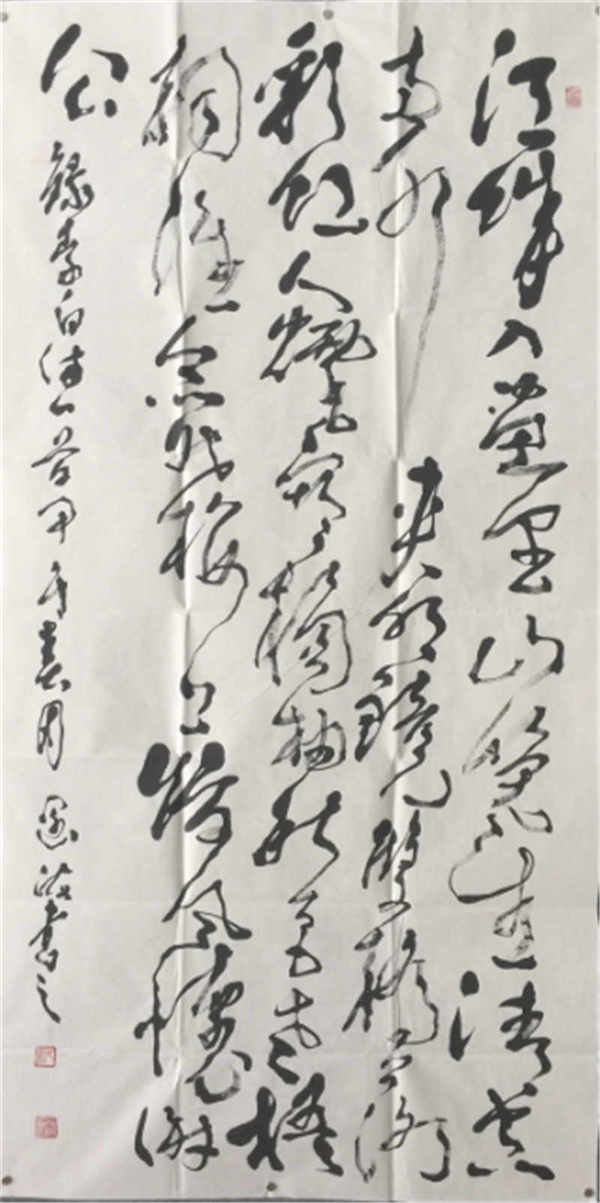 江城入画里山晚望晴空
两水夹明镜双桥落
彩虹人烟寒橘柚秋色老梧
桐谁念北楼上临风怀谢
公 录李白诗一首甲午年春月 书之